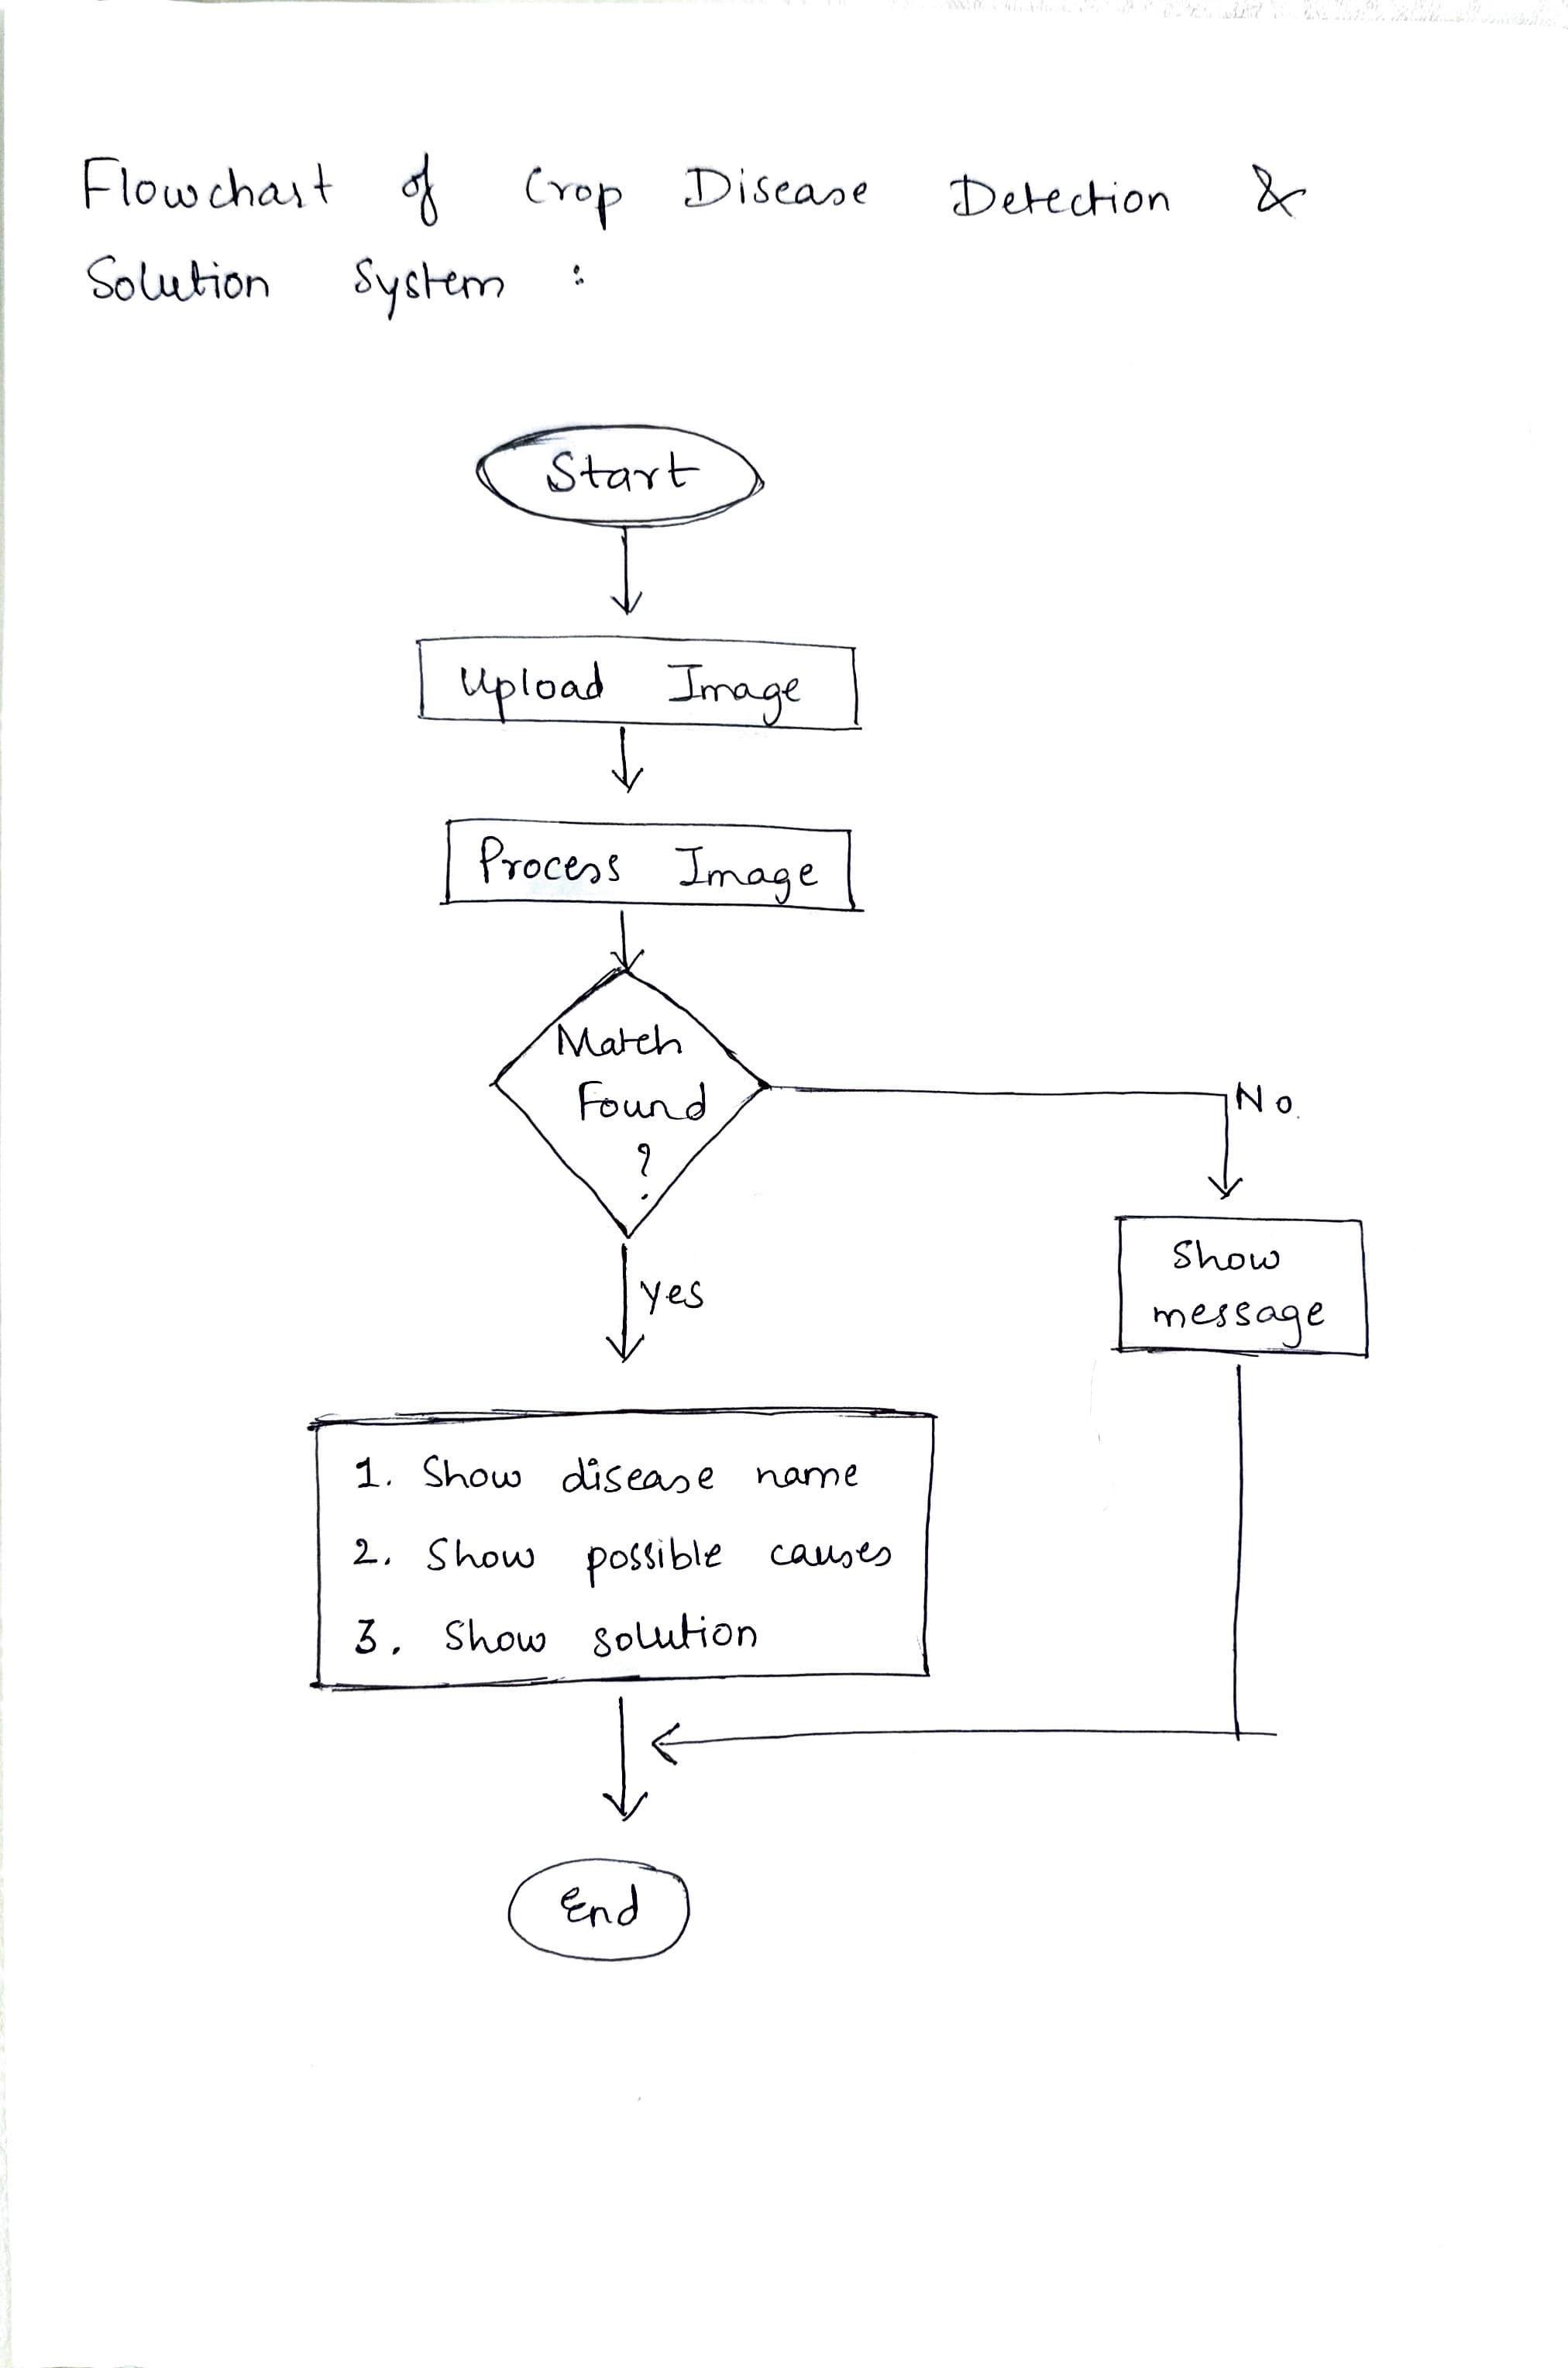 Flowchart of Crop Disease Detection &
Solution System :
Start
Upload Image
Process Image
Match
Found
?
No.
Yes
Show
message
1. Show disease name
2. Show possible causes
3. Show solution
End